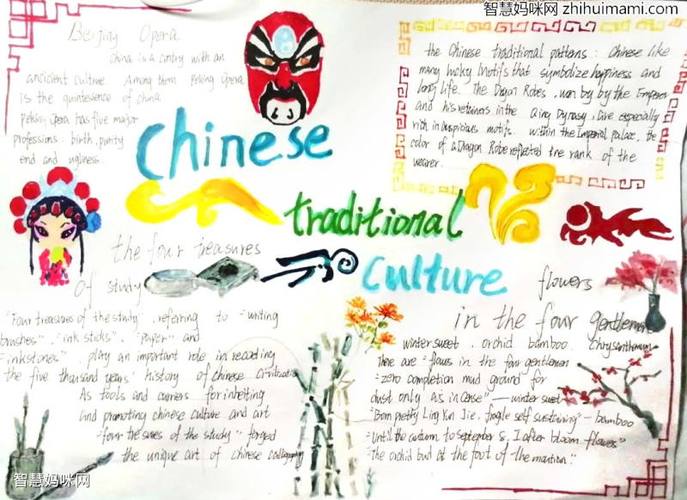 智慧妈咪网 zhihuimami.com
Beijing Opera
China is a contry with an
ancident culture Among them Peking Opera
is the quintessence of china
Peking Opera has five major
professions: birth, purity
end and ugliness
the Chinese traditional patterns: Chinese like
many lucky motifs that symbolize happiness and
long life. The Dragon Robes, worn by by the Emperors
and his retainers in the Qing Dynasty, are especially
rich in auspicious motifs. within the Imperial palace, the
color of a Dragon Robe reflected the rank of the
wearer.
Chinese
traditional
culture
the four treasures
of study
"Four treasures of the study" referring to "writing
brushes", "ink sticks", "paper" and
"inkstones" play an important role in recording
the five thousand years' history of chinese civilization
As tools and carriers for
and promoting chinese culture and art
"four treasures of the study" forged
the unique art of chinese calligraphy
flowers
in the four gentlemen
winter sweet. orchid bamboo chrysanthemum
There are "flowers in the four gentlemen
"zero completion mud ground for
dust only as incense" — winter sweet
"Born pretty Ling Yun Jie, fragile self sustaining" — bamboo
"Until the autumn to september 8, I after bloom flowers"
"The orchid bud at the foot of the mountion."
智慧妈咪网